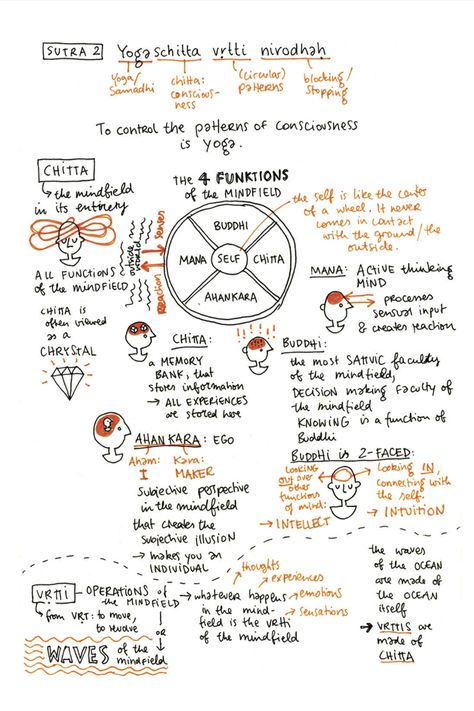 SUTRA 2 Yogaschitta vṛtti nirodhaḥ
Yoga/
Samadhi
chitta:
conscious-
ness
(circular)
patterns
blocking/
stopping
To control the patterns of consciousness
is yoga.
CHITTA
↳ the mindfield
in its entirety
ALL FUNCTIONS
of the mindfield
CHITTA is
often viewed
as a
CHRYSTAL
THE 4 FUNKTIONS
of the MINDFIELD
outside
world
senses
Reaction
BUDDHI
MANA
SELF
CHITTA
AHANKARA
the self is like the center
of a wheel. It never
comes in contact
with the ground/the
outside.
MANA: ACTIVE thinking
MIND
→ processes
sensual input
& creates reaction
CHITTA:
a MEMORY
BANK, that
stores information
→ ALL EXPERIENCES
are stored here
BUDDHI:
the most SATTVIC faculty
of the mindfield,
DECISION making faculty of
the mindfield
KNOWING is a function of
Buddhi
AHANKARA: EGO
Aham:
I
Kara:
MAKER
Subjective perspective
in the mindfield
that creates the
subjective illusion
→ makes you an
INDIVIDUAL
BUDDHI is 2-FACED:
Looking
OUT over
other
functions
of mind:
→ INTELLECT
Looking IN,
connecting with
the self.
→ INTUITION
VRTTI - OPERATIONS of
the MINDFIELD
↳ from VRT: to move,
to revolve
or
WAVES of the
mindfield
→ whatever happens
in the mind-
field is the vrtti
of the mindfield
thoughts
experiences
emotions
sensations
the waves
of the OCEAN
are made of
the OCEAN
itself
→ VRTTIS are
made of
CHITTA